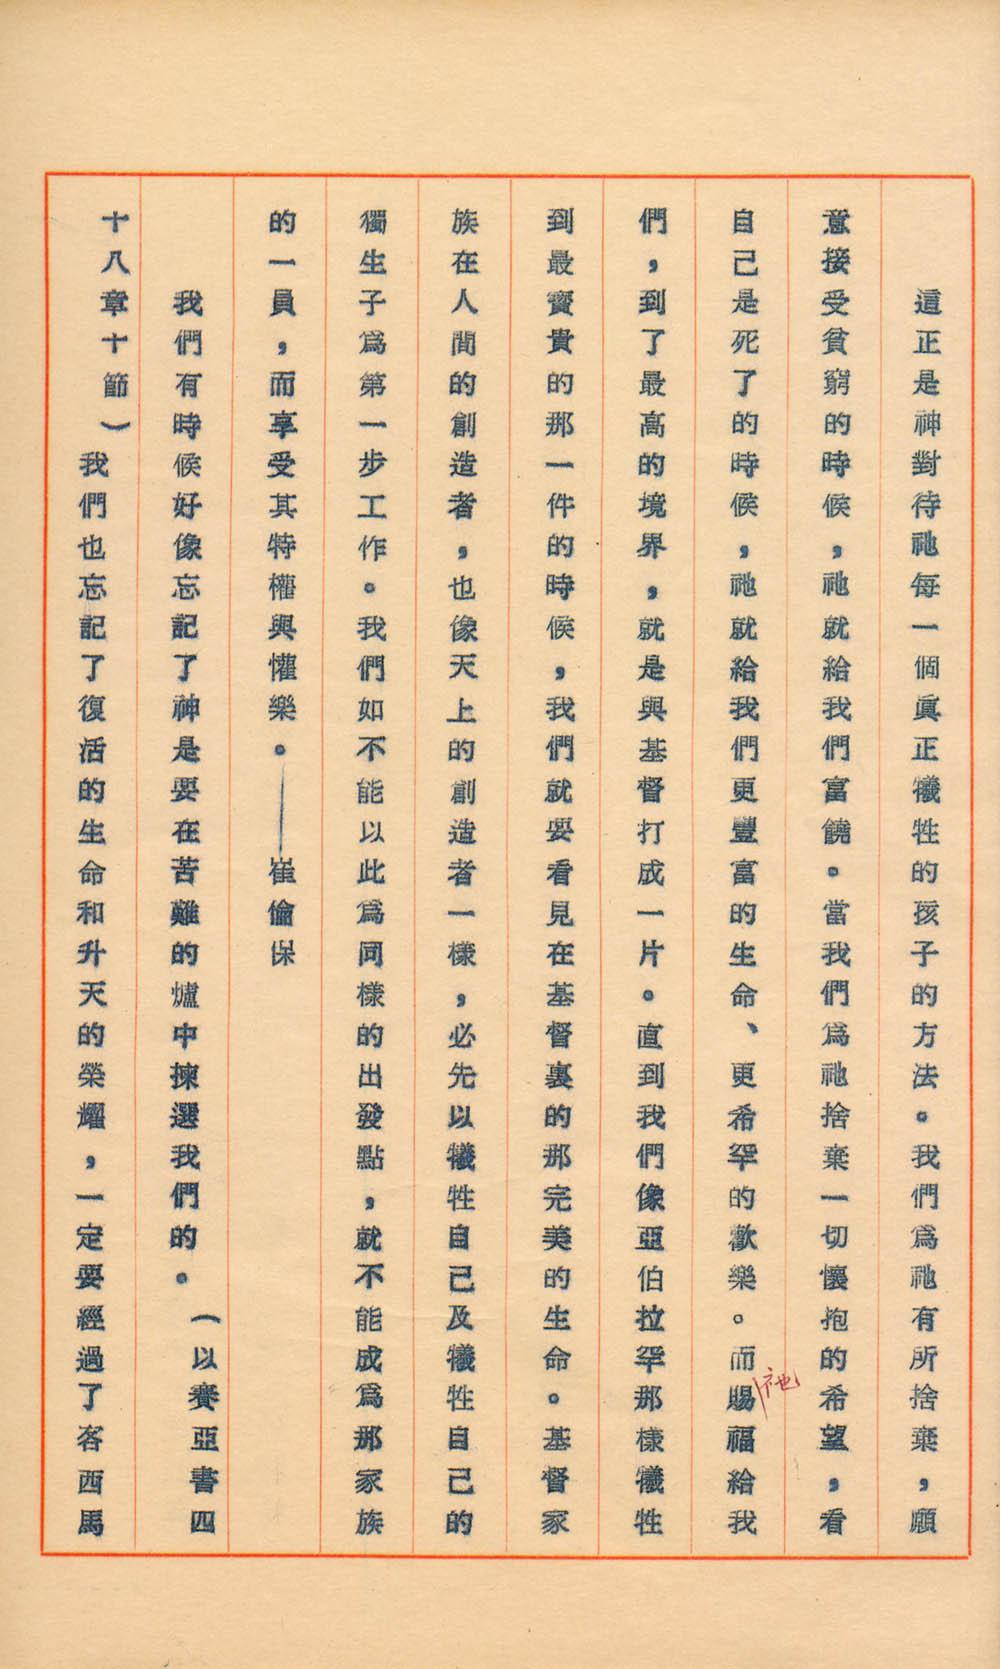 這正是神對待祂每一個眞正犧牲的孩子的方法。我們爲祂有所捨棄，願
意接受貧窮的時候，祂就給我們富饒。當我們爲祂捨棄一切懷抱的希望，看
自己是死了的時候，祂就給我們更豐富的生命、更希罕的歡樂。而祂賜福給我
們，到了最高的境界，就是與基督打成一片。直到我們像亞伯拉罕那樣犧牲
到最寶貴的那一件的時候，我們就要看見在基督裏的那完美的生命。基督家
族在人間的創造者，也像天上的創造者一樣，必先以犧牲自己及犧牲自己的
獨生子爲第一步工作。我們如不能以此爲同樣的出發點，就不能成爲那家族
的一員，而享受其特權與懽樂。——崔倫保
我們有時候好像忘記了神是要在苦難的爐中揀選我們的。（以賽亞書四
十八章十節）我們也忘記了復活的生命和升天的榮耀，一定要經過了客西馬